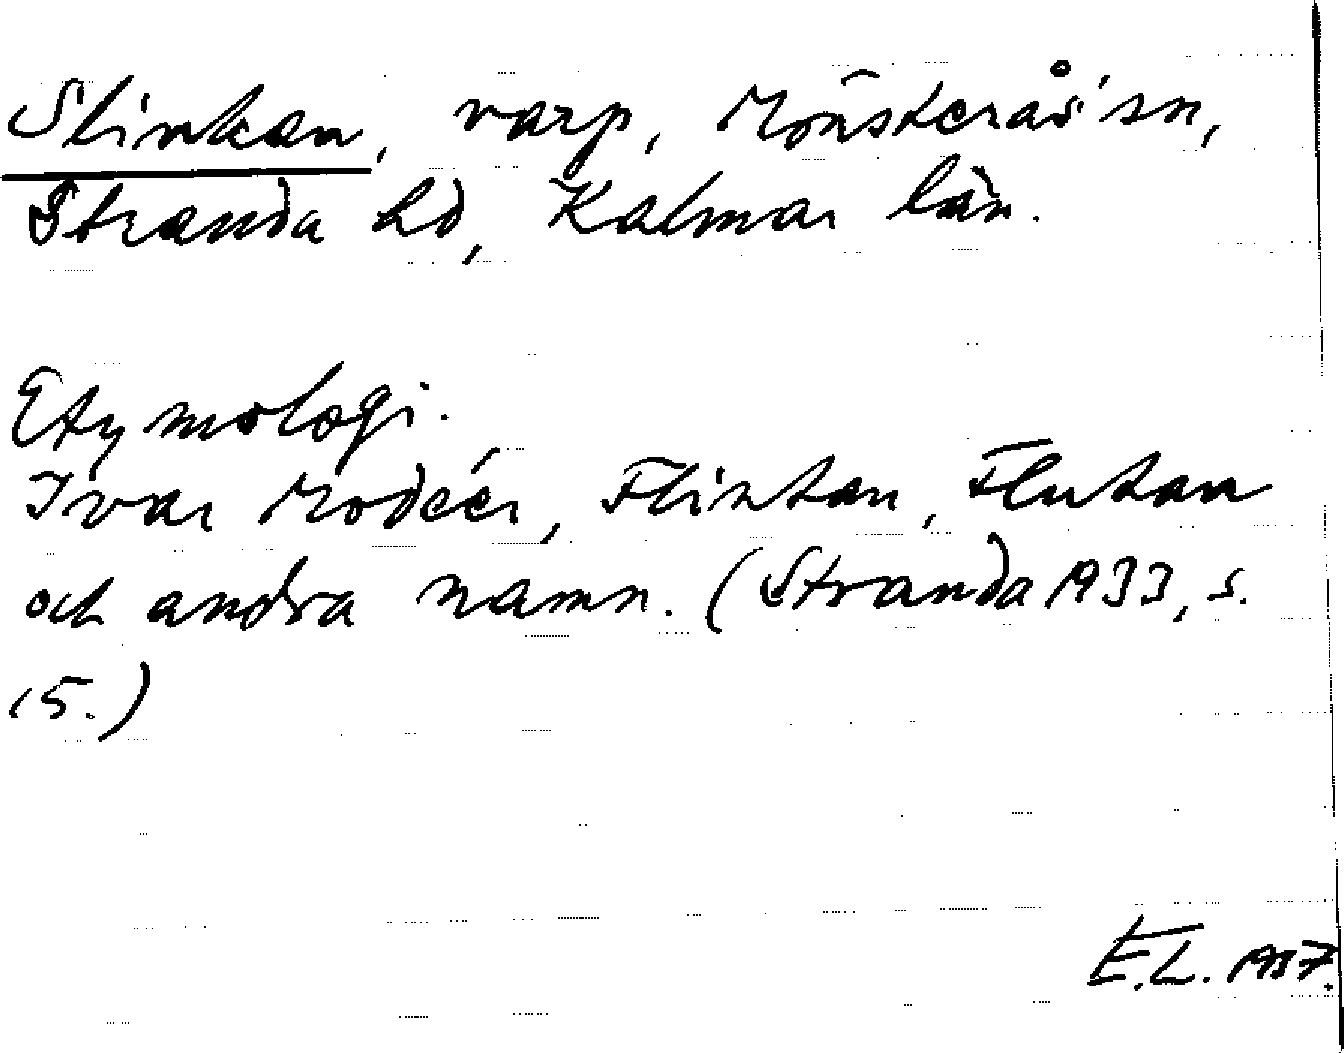 Slinkan, varp, Mönsterås sn,
Stranda hd, Kalmar län.
Etymologi.
Ivar Modéer, Flintan, Flutan
och andra namn. (Stranda 1933, s.
15.)
E.L. 1937.